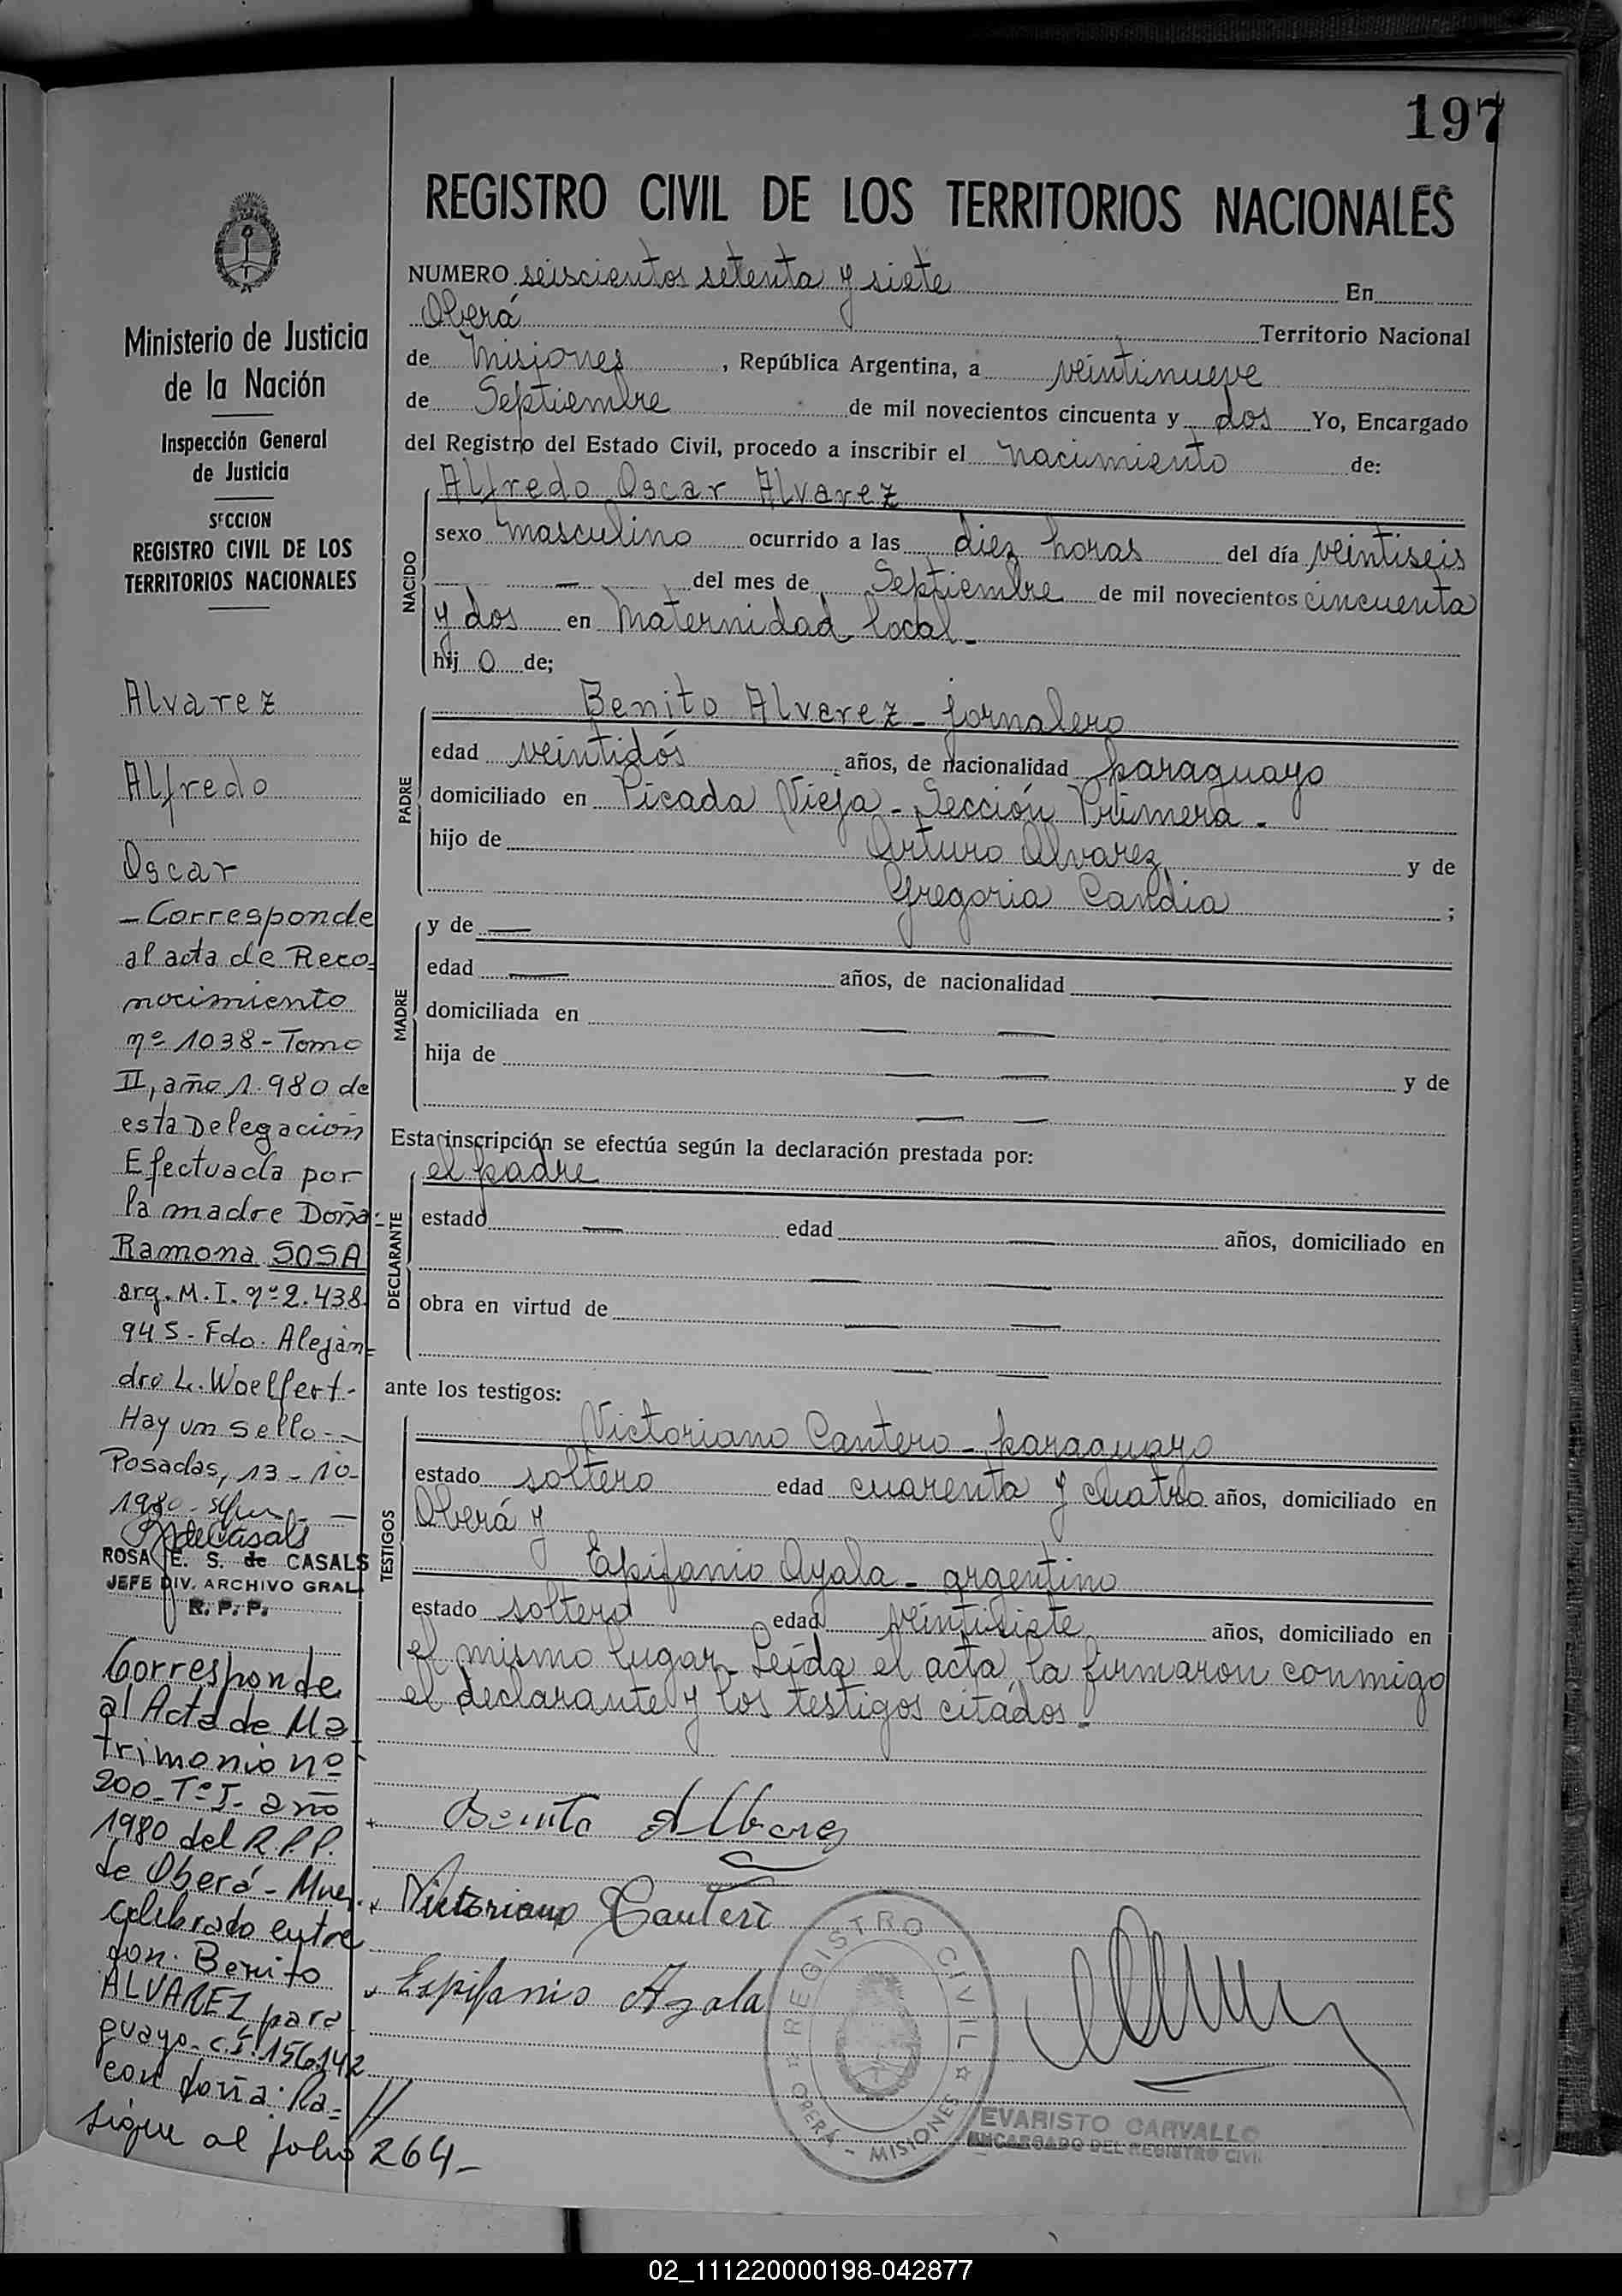 197
REGISTRO CIVIL DE LOS TERRITORIOS NACIONALES
Ministerio de Justicia
de la Nación
Inspección General
de Justicia
SECCION
REGISTRO CIVIL DE LOS
TERRITORIOS NACIONALES
Alvarez
Alfredo
Oscar
- Corresponde
al acta de Reco=
nocimiento
nº 1038 - Tomo
II, año 1.980 de
esta Delegación
Efectuada por
la madre Doña:
Ramona SOSA
arg. M. I. nº 2.438.
945 - Fdo. Alejan=
dro L. Woelfert -
Hay un sello -
Posadas, 13 - 10 -
1980 -
R de Casals
ROSA E. S. de CASALS
JEFE DIV. ARCHIVO GRAL.
R. P. P.
Corresponde
al Acta de Ma
trimonio nº
200 - Tº I - año
1980 del R.P.P.
de Oberá - Mnes.
celebrado entre
don: Benito
ALVAREZ para
guayo - C.I. 156.142
con doña: Ra= //
Sigue al folio 264 -
NUMERO seiscientos setenta y siete En
Oberá Territorio Nacional
de Misiones, República Argentina, a veintinueve
de Septiembre de mil novecientos cincuenta y dos Yo, Encargado
del Registro del Estado Civil, procedo a inscribir el nacimiento de:
NACIDO
Alfredo Oscar Alvarez
sexo masculino ocurrido a las diez horas del día veintiseis
— del mes de Septiembre de mil novecientos cincuenta
y dos en Maternidad local -
hijo de;
PADRE
Benito Alvarez - jornalero
edad veintidós años, de nacionalidad paraguayo
domiciliado en Picada Vieja - Sección Primera -
hijo de Arturo Alvarez y de
Gregoria Candia ;
MADRE
y de —
edad — años, de nacionalidad —
domiciliada en — —
hija de — — y de
— —
Esta inscripción se efectúa según la declaración prestada por:
DECLARANTE
el padre
estado — edad — años, domiciliado en
— —
obra en virtud de — —
— —
ante los testigos:
TESTIGOS
Victoriano Cantero - paraguayo
estado soltero edad cuarenta y cuatro años, domiciliado en
Oberá y
Epifanio Ayala - argentino
estado soltero edad veintisiete años, domiciliado en
el mismo lugar - Leída el acta, la firmaron conmigo
el declarante y los testigos citados -
Benito Albarez
Victoriano Canteri
Epifanio Ayala
REGISTRO CIVIL
OBERÁ - MISIONES
EVARISTO CARVALLO
ENCARGADO DEL REGISTRO CIVIL
02_111220000198-042877